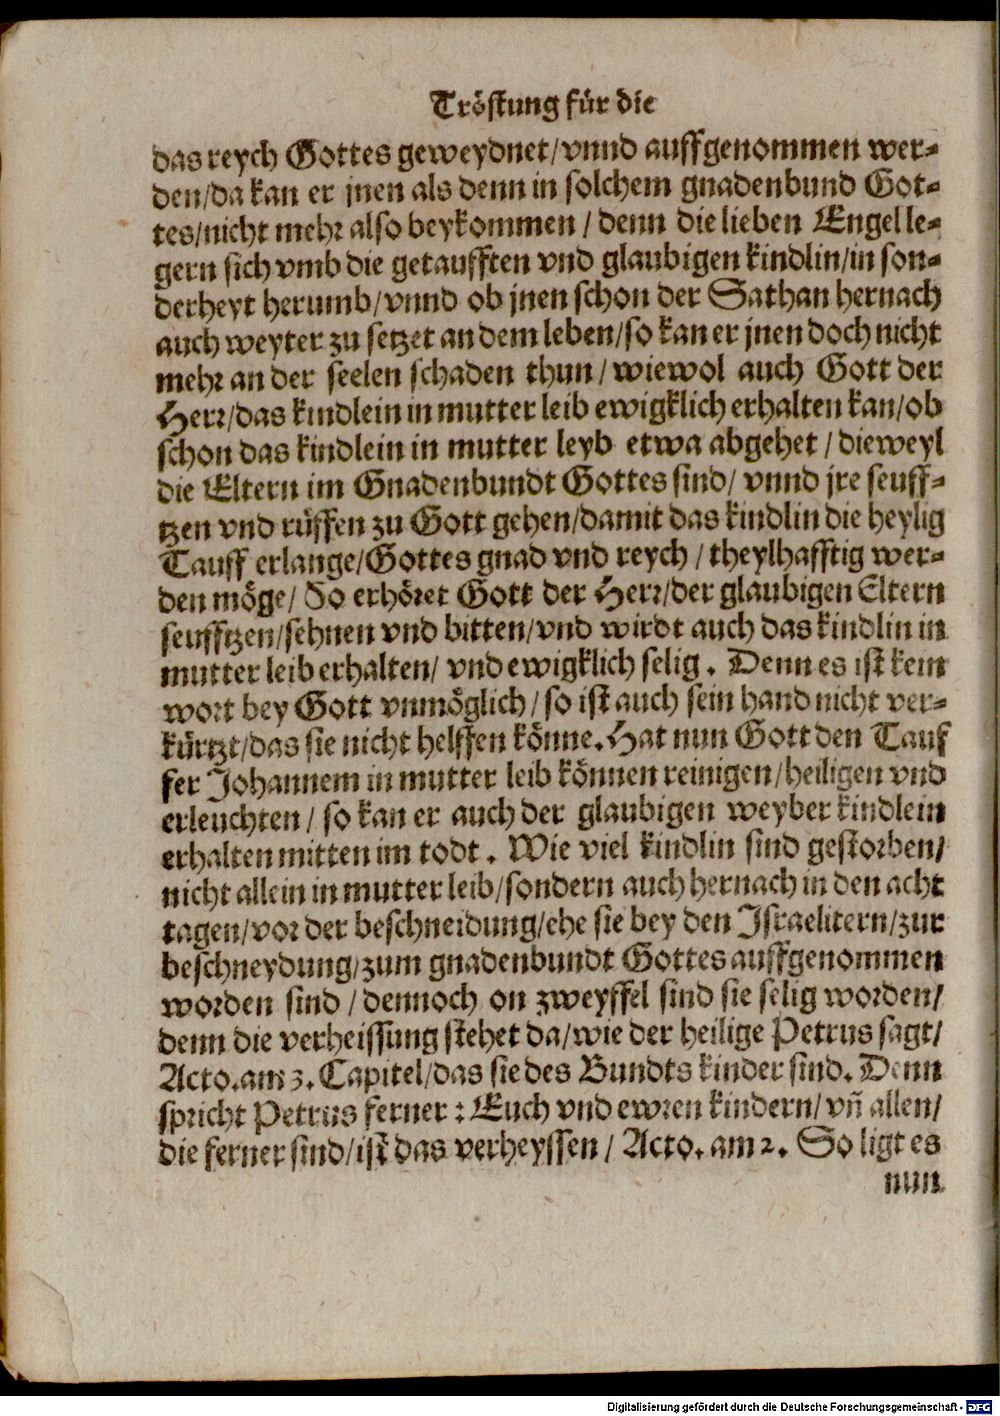 Tröstung für die
das reych Gottes geweydnet/vnnd auffgenommen wer-
den/da kan er jnen als denn in solchem gnadenbund Got-
tes/nicht mehr also beykommen / denn die lieben Engel le-
gern sich vmb die getaufften vnd glaubigen kindlin/in son-
derheyt herumb/vnnd ob jnen schon der Sathan hernach
auch weyter zu setzet an dem leben/so kan er jnen doch nicht
mehr an der seelen schaden thun / wiewol auch Gott der
Herr/das kindlein in mutter leib ewigklich erhalten kan/ob
schon das kindlein in mutter leyb etwa abgehet / dieweyl
die Eltern im Gnadenbundt Gottes sind/ vnnd jre seuff-
tzen vnd rüffen zu Gott gehen/damit das kindlin die heylig
Tauff erlange/Gottes gnad vnd reych / theylhafftig wer-
den möge/ So erhöret Gott der Herr/der glaubigen Eltern
seufftzen/sehnen vnd bitten/vnd wirdt auch das kindlin in
mutter leib erhalten/ vnd ewigklich selig. Denn es ist kein
wort bey Gott vnmöglich / so ist auch sein hand nicht ver-
kürtzt/das sie nicht helffen könne. Hat nun Gott den Tauf
fer Johannem in mutter leib können reinigen/heiligen vnd
erleuchten / so kan er auch der glaubigen weyber kindlein
erhalten mitten im todt. Wie viel kindlin sind gestorben/
nicht allein in mutter leib/sondern auch hernach in den acht
tagen/vor der beschneidung/ehe sie bey den Israelitern/zur
beschneydung/zum gnadenbundt Gottes auffgenommen
worden sind / dennoch on zweyffel sind sie selig worden/
denn die verheissung stehet da/wie der heilige Petrus sagt/
Acto. am 3. Capitel/das sie des Bundts kinder sind. Denn
spricht Petrus ferner : Euch vnd ewren kindern/vñ allen/
die ferner sind/ist das verheyssen / Acto. am 2. So ligt es
nun
Digitalisierung gefördert durch die Deutsche Forschungsgemeinschaft - DFG